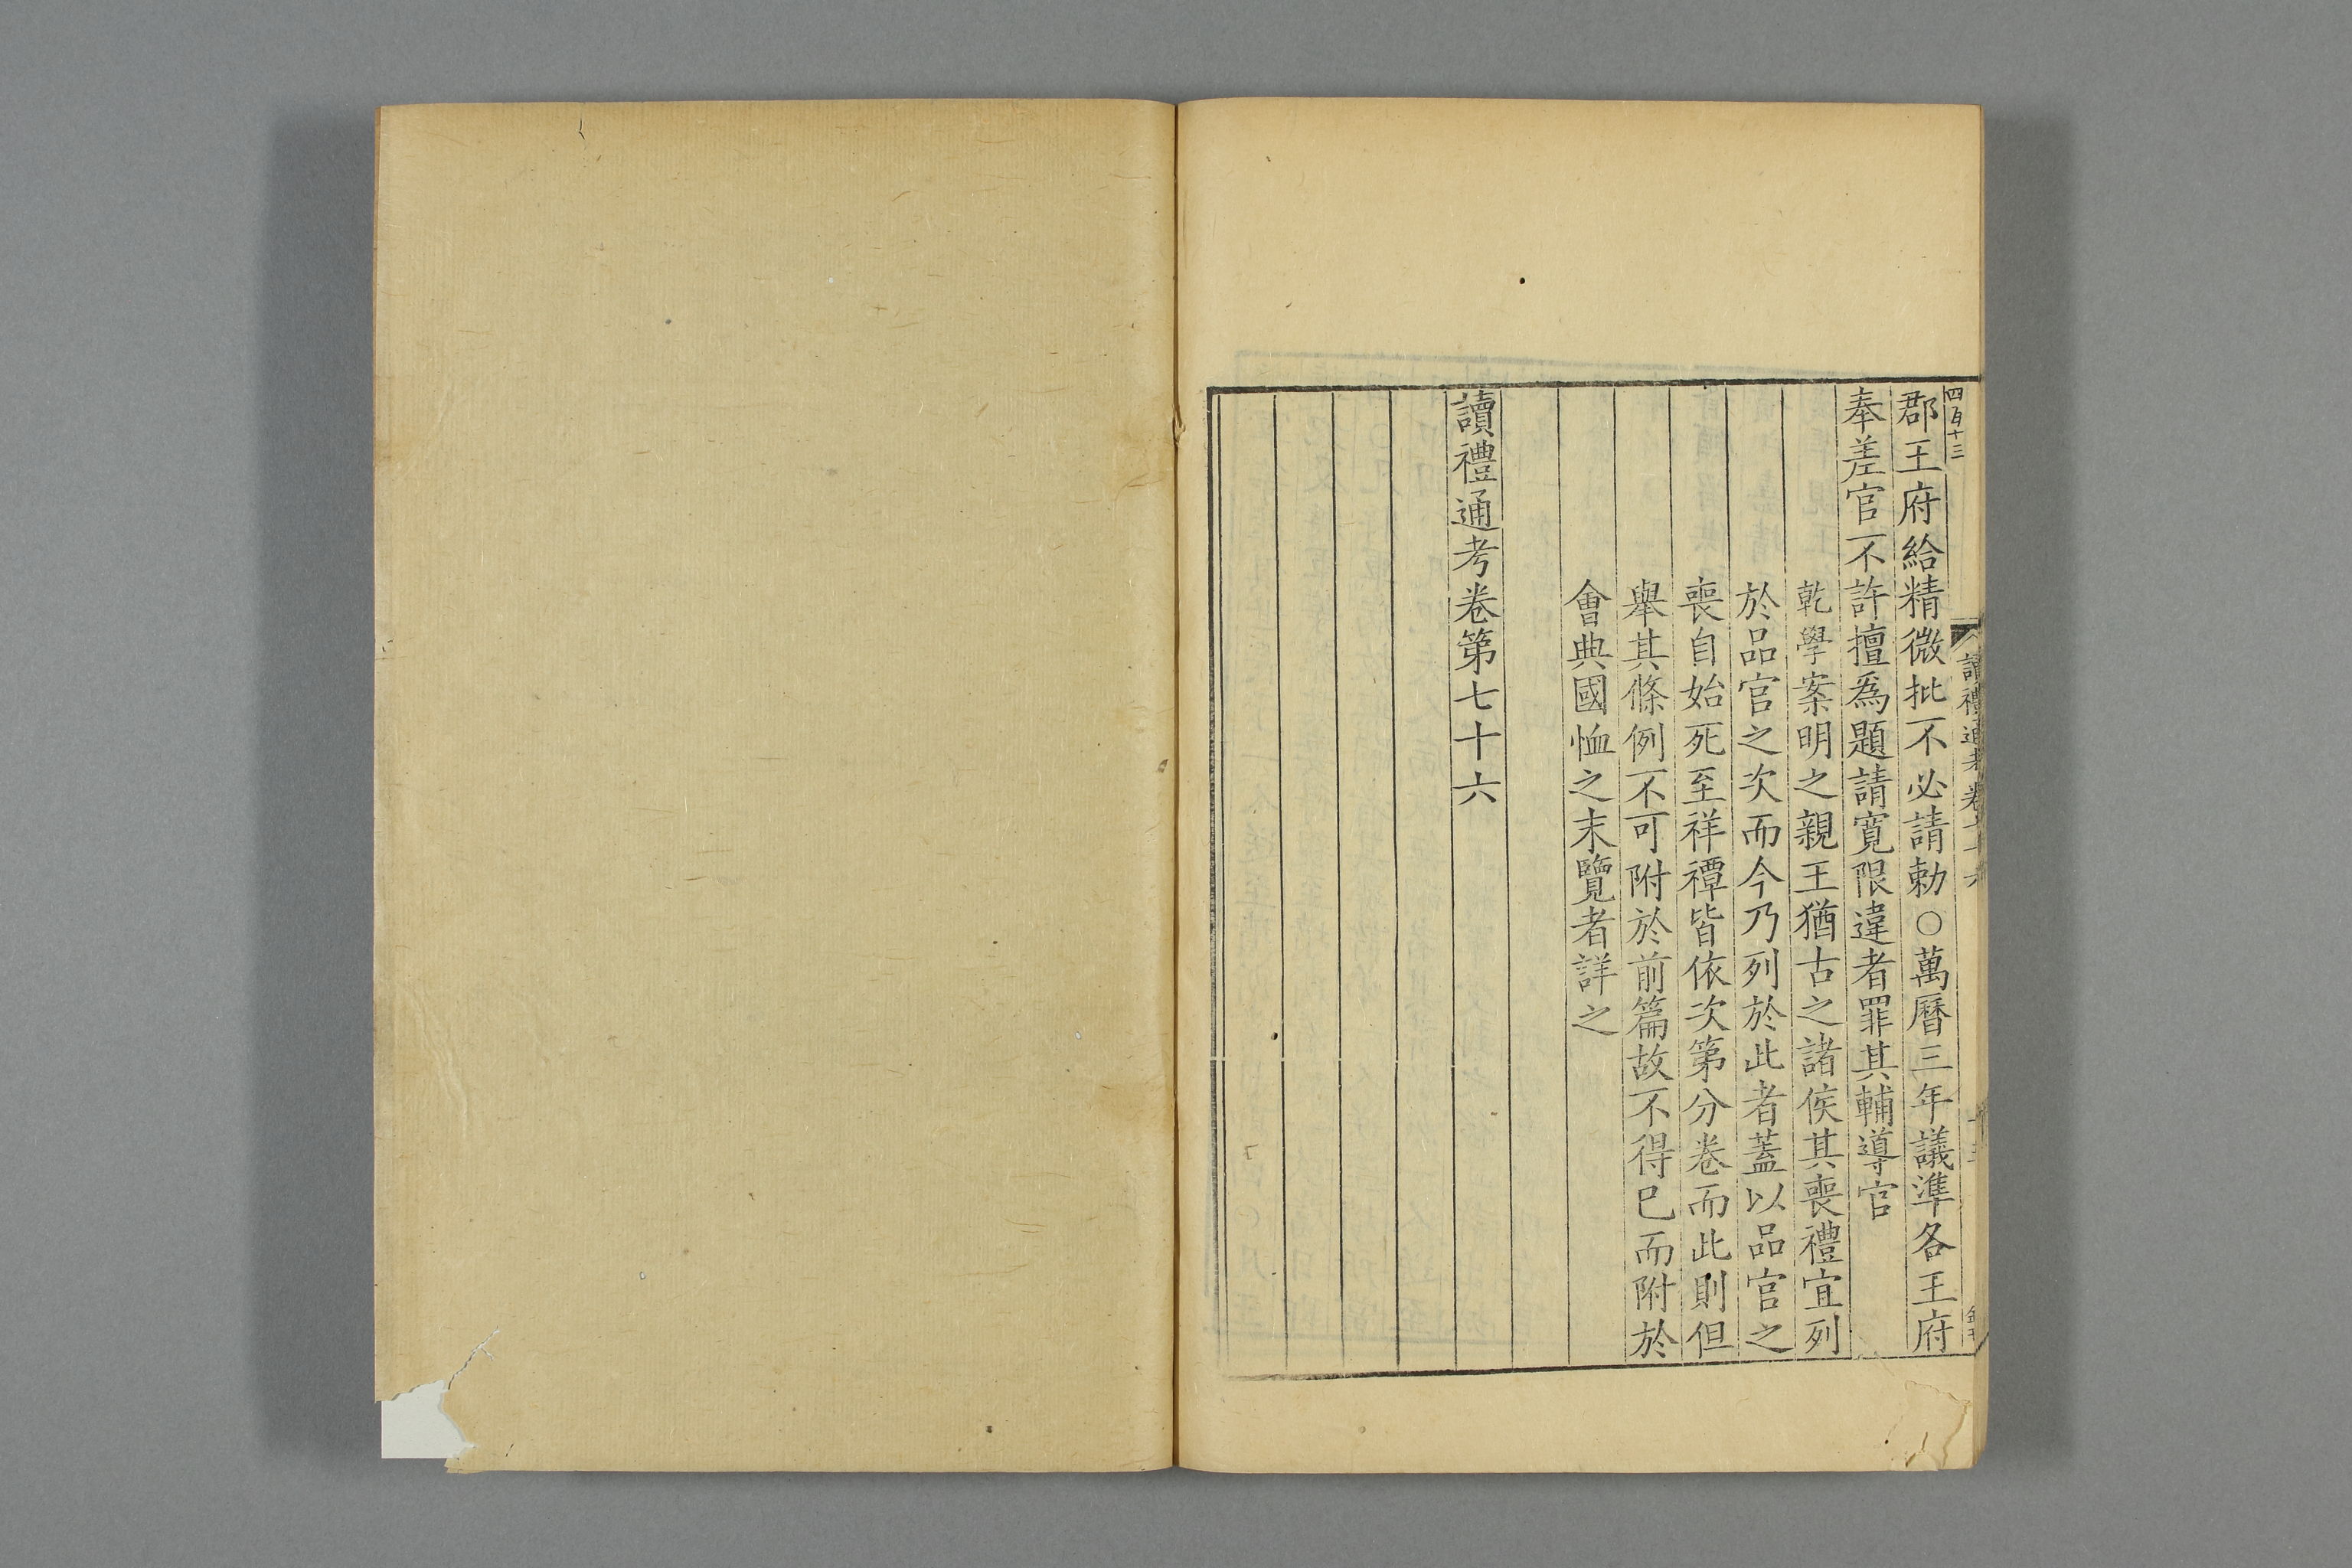 四百十三
郡王府給精微批不必請勅○萬曆三年議準各王府
奉差官不許擅爲題請寬限違者罪其輔導官
乾學案明之親王猶古之諸侯其喪禮宜列
於品官之次而今乃列於此者蓋以品官之
喪自始死至祥禫皆依次第分卷而此則但
舉其條例不可附於前篇故不得已而附於
會典國恤之末覽者詳之
讀禮通考卷第七十六